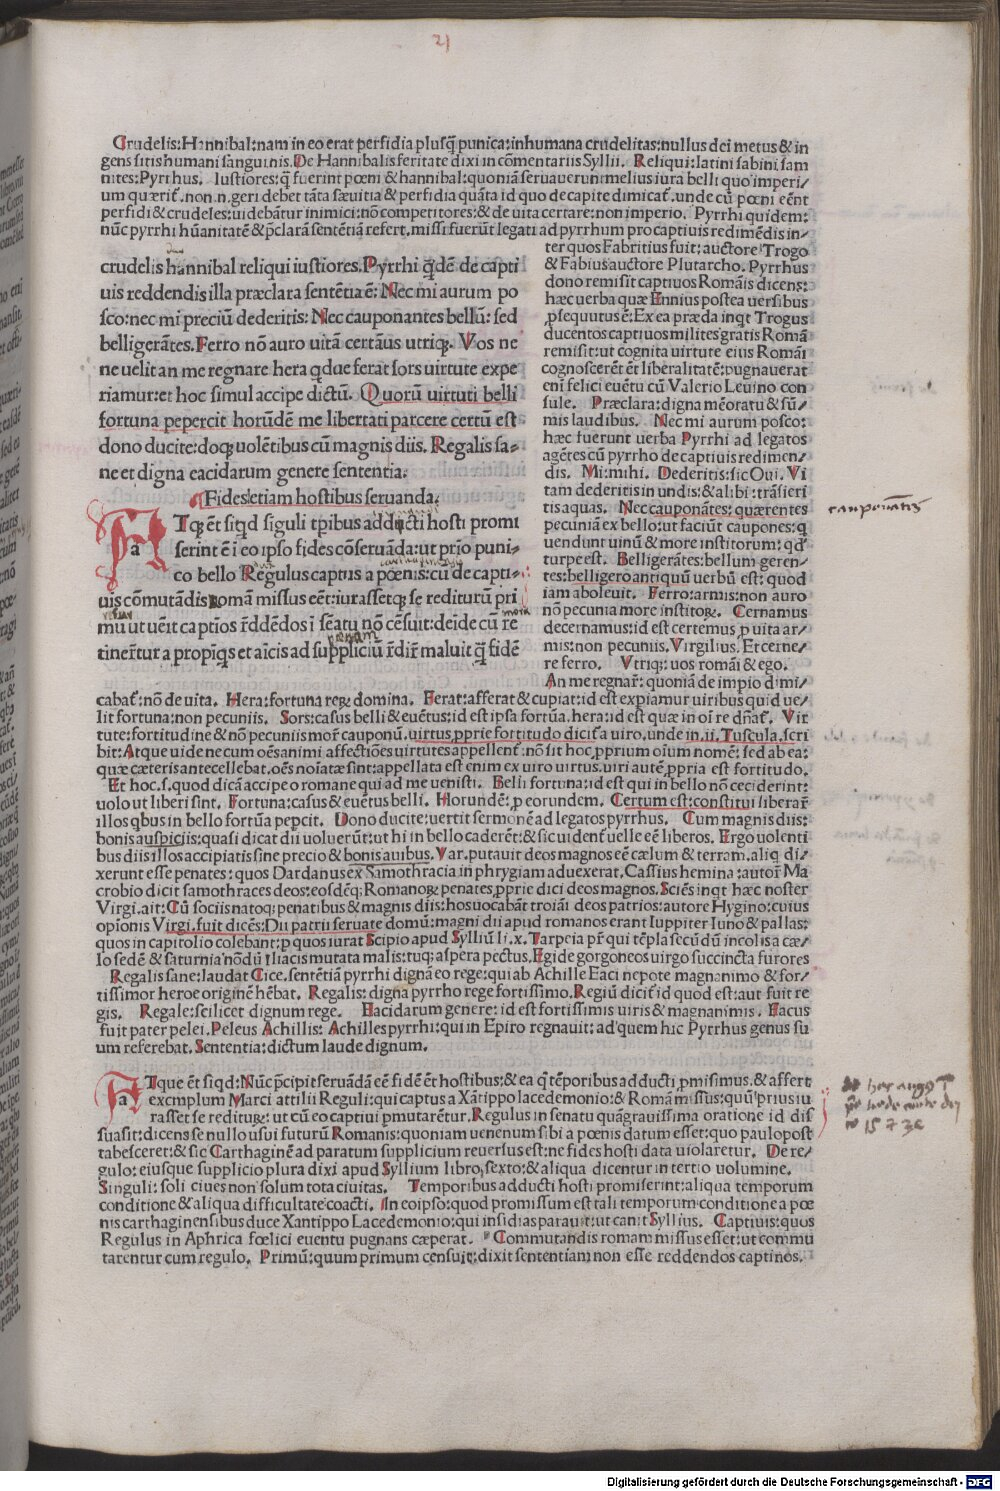 21
Crudelis:Hannibal:nam in eo erat perfidia plusq̄ punica:inhumana crudelitas:nullus dei metus & in
gens sitis humani sanguinis. De Hannibalis feritate dixi in cōmentariis Syllii. Reliqui:latini sabini sam
nites:Pyrrhus. Iustiores:q̄ fuerint pœni & hannibal:quoniā seruauerunt melius iura belli quo imperi/
um quærit᷑. non.n.geri debet tāta sæuitia & perfidia quāta id quo de capite dimicat᷑. unde cū pœni eēnt
perfidi & crudeles:uidebātur inimici:nō competitores:& de uita certare:non imperio. Pyrrhi quidem:
nūc pyrrhi hūanitatē & p̄clarā sentētiā refert, missi fuerūt legati ad pyrrhum pro captiuis redimēdis in/
crudelis hannibal reliqui iustiores. Pyrrhi q̄dē de capti
uis reddendis illa præclara sentētia ē: Nec mi aurum po
sco:nec mi preciū dederitis: Nec cauponantes bellū: sed
belligerātes. Ferro nō auro uitā certāus utriq;. Vos ne
ne uelit an me regnare hera q̄d ue ferat sors uirtute expe
riamur:et hoc simul accipe dictū. Quorū uirtuti belli
fortuna pepercit horūdē me libertati parcere certū est
dono ducite:doq; uolētibus cū magnis diis. Regalis sa-
ne et digna eacidarum genere sententia.
¶Fides etiam hostibus seruanda.
ATq; ēt siqd siguli tp̄ibus adducti hosti promi
a
serint ē i eo ipso fides cōseruāda:ut prīo puni-
co bello Regulus captus a pœnis:cū de capti-
uis cōmutādis romā missus eēt:iurassetq; se rediturū pri
mū ut uēit captīos r̄ddēdos ī sēatu nō cēsuit:deide cū re
tinert᷑ur a propīq̄s et aīcis ad suppliciū r̄dir̄ maluit q̄ fidē
ter quos Fabritius fuit: auctore Trogo
& Fabius auctore Plutarcho. Pyrrhus
dono remisit captiuos Romāis dicens:
hæc uerba quæ Ennius postea uersibus
ꝓsequutus ē: Ex ea præda inqt Trogus
ducentos captiuos milites gratis Romā
remisit:ut cognita uirtute eius Romāi
cognoscerēt ēt liberalitatē:pugnauerat
eni felici euētu cū Valerio Leuino con
sule. Præclara:digna mēoratu & sū/
mis laudibus. Nec mi aurum posco:
hæc fuerunt uerba Pyrrhi ad legatos
agētes cū pyrrho de captiuis redimen/
dis. Mi:mihi. Dederitis:sic Oui. Vi
tam dederitis in undis:& alibi:trāsieri
tis aquas. Nec cauponātes: quærentes
pecuniā ex bello:ut faciūt caupones:q
uendunt uinū & more institorum: qđ
turpe est. Belligerātes:bellum geren-
tes:belligero antiquū uerbū est: quod
iam aboleuit. Ferro:armis:non auro
nō pecunia more institoꝝ. Cernamus
decernamus:id est certemus ꝓ uita ar/
mis:non pecuniis. Virgilius. Et cerne/
re ferro. Vtriq;:uos romāi & ego.
An me regnar̄: quoniā de impio dimi/
cauponātis
cabat᷑:nō de uita. Hera:fortuna reꝝ domina. Ferat:afferat & cupiat:id est expiamur uiribus quid ue/
lit fortuna:non pecuniis. Sors:casus belli & euētus:id est ipsa fortūa.hera:id est quæ in oī re dn̄at᷑. Vir
tute:fortitudine & nō pecuniis mor̄ cauponū. uirtus ꝓprie fortitudo dicit᷑ a uiro, unde in.ii.Tuscula.scri
bit:Atque uide ne cum oēs animi affectiōes uirtutes appellent᷑:nō sit hoc ꝓprium oīum nomē: sed ab ea:
quæ cæteris antecellebat.oēs noīatæ sint:appellata est enim ex uiro uirtus.uiri autē ꝓpria est fortitudo.
Et hoc.s.quod dicā accipe o romane qui ad me uenisti. Belli fortuna:id est qui in bello nō ceciderint:
uolo ut liberi sint. Fortuna:casus & euētus belli. Horundē: ꝓ eorundem. Certum est:constitui liberar̄
illos qbus in bello fortūa pepcit. Dono ducite:uertit sermonē ad legatos pyrrhus. Cum magnis diis:
bonis auspiciis:quasi dicat dii uoluerūt:ut hi in bello caderēt:& sic uident᷑ uelle eē liberos. Ergo uolenti
bus diis illos accipiatis sine precio & bonis auibus. Var.putauit deos magnos eē cælum & terram.aliq di/
xerunt esse penates: quos Dardanus ex Samothracia in phrygiam aduexerat. Cassius hemina:autor̄ Ma
crobio dicit samothraces deos:eosdēq; Romanoꝝ penates ꝓprie dici deos magnos. Sciēs inqt hæc noster
Virgi.ait: Cū sociis natoq; penatibus & magnis diis:hos uocabāt troiāi deos patrios:autore Hygino:cuius
opīonis Virgi.fuit dicēs: Dii patrii seruate domū: magni dii apud romanos erant Iuppiter Iuno & pallas:
quos in capitolio colebant:p quos iurat Scipio apud Sylliū li.x.Tarpeia pr̄ qui tēpla secūdū incolis a cæ/
lo sedē & saturnia nōdū Iliacis mutata malis:tuq; aspera pectus. Egide gorgoneos uirgo succincta furores
Regalis sane:laudat Cice.sentētiā pyrrhi dignā eo rege:qui ab Achille Eaci nepote magnanimo & for/
tissimor heroe originē hēbat. Regalis: digna pyrrho rege fortissimo. Regiū dicit᷑ id quod est:aut fuit re
gis. Regale:scilicet dignum rege. Eacidarum genere: id est fortissimis uiris & magnanimis. Eacus
fuit pater pelei. Peleus Achillis: Achilles pyrrhi:qui in Epiro regnauit: ad quem hic Pyrrhus genus su
um referebat. Sententia:dictum laude dignum.
ATque ēt siqd: Nūc p̄cipit seruādā eē fidē ēt hostibus:& ea q̄ tēporibus adducti ꝓmisimus. & affert
a
exemplum Marci attilii Reguli:qui captus a Xātippo lacedemonio:& Romā missus:quū prius iu
rasset se rediturꝝ: ut cū eo captiui ꝓmutarētur. Regulus in senatu quāgrauissima oratione id dis
suasit:dicens se nullo usui futurū Romanis:quoniam uenenum sibi a pœnis datum esset:quo paulo post
tabesceret:& sic Carthaginē ad paratum supplicium reuersus est:ne fides hosti data uiolaretur. De re/
gulo:eiusque supplicio plura dixi apud Syllium libro sexto:& aliqua dicentur in tertio uolumine.
Singuli:soli ciues non solum tota ciuitas. Temporibus adducti hosti promiserint:aliqua temporum
conditione & aliqua difficultate coacti. In eo ipso:quod promissum est tali temporum conditione a pœ
nis carthaginensibus duce Xantippo Lacedemonio:qui insidias parauit:ut canit Syllius. Captiuis:quos
Regulus in Aphrica fœlici euentu pugnans cæperat. Commutandis romam missus esset:ut commu
tarentur cum regulo. Primū:quum primum censuit:dixit sententiam non esse reddendos captiuos.
Digitalisierung gefördert durch die Deutsche Forschungsgemeinschaft - DFG